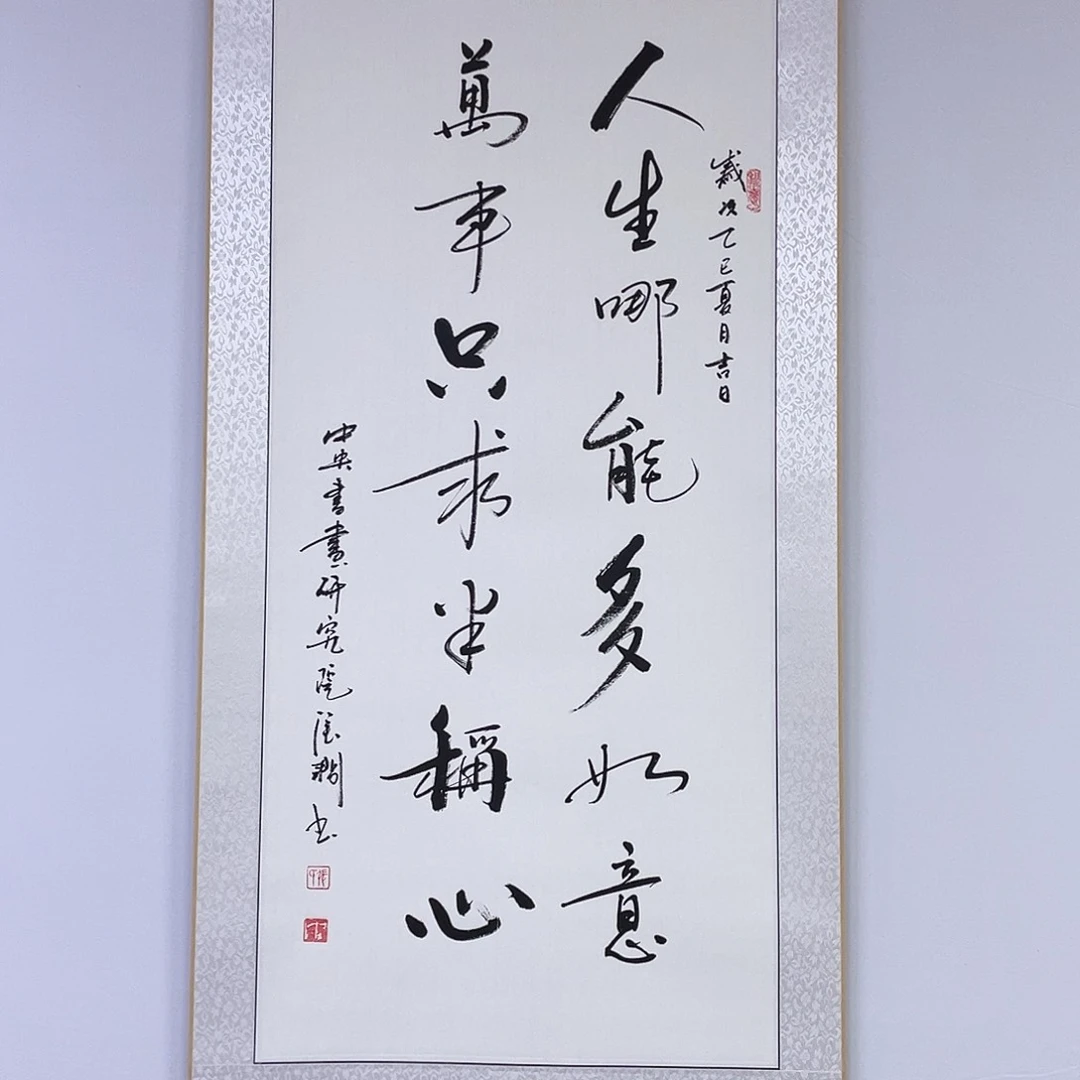 歲次乙巳夏月吉日
人生哪能多如意
萬事只求半稱心
中央書畫研究院
书